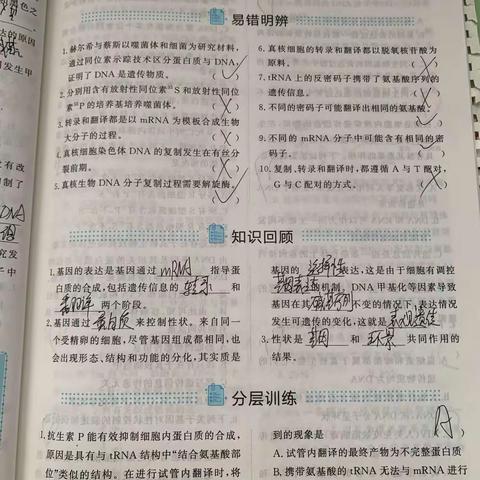 易错明辨
1. 赫尔希与蔡斯以噬菌体和细菌为研究材料,
通过同位素示踪技术区分蛋白质与 DNA,
证明了 DNA 是遗传物质。 (✓)
2. 分别用含有放射性同位素³⁵S 和放射性同位
素³²P 的培养基培养噬菌体。 (X)
3. 转录和翻译都是以 mRNA 为模板合成生物
大分子的过程。 (X)
4. 真核细胞染色体 DNA 的复制发生在有丝分
裂前期。 (X)
5. 真核生物 DNA 分子复制过程需要解旋酶。
(✓)
6. 真核细胞的转录和翻译都以脱氧核苷酸为
原料。 (X)
7. tRNA 上的反密码子携带了氨基酸序列的
遗传信息。 (X)
8. 不同的密码子可能翻译出相同的氨基酸。
(✓)
9. 不同的 mRNA 分子中可能含有相同的密
码子。 (✓)
10. 复制、转录和翻译时,都遵循 A 与 T 配对、
G 与 C 配对的方式。 (X)
知识回顾
1. 基因的表达是基因通过 mRNA 指导蛋
白质的合成,包括遗传信息的 转录 和
翻译 两个阶段。
2. 基因通过 蛋白质 来控制性状。来自同一
个受精卵的细胞,尽管基因组成都相同,也
会出现形态、结构和功能的分化,其实质是
基因的 选择性 表达,这是由于细胞有调控
基因表达 的机制。DNA 甲基化等因素导致
基因在其 碱基序列 不变的情况下,表达情况
发生可遗传的变化,这就是 表观遗传
3. 性状是 基因 和 环境 共同作用的
结果。
分层训练
1. 抗生素 P 能有效抑制细胞内蛋白质的合成,
原因是具有与 tRNA 结构中“结合氨基酸部
位”类似的结构。在进行试管内翻译时,将
到的现象是 (A)
A. 试管内翻译的最终产物为不完整蛋白质
B. 携带氨基酸的 tRNA 无法与 mRNA 进行